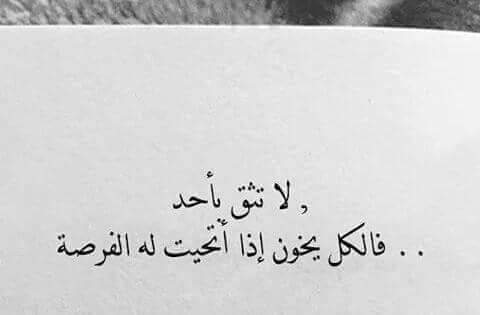 , لا تثق بأحد
. . فالكل يخون إذا أتحيت له الفرصة